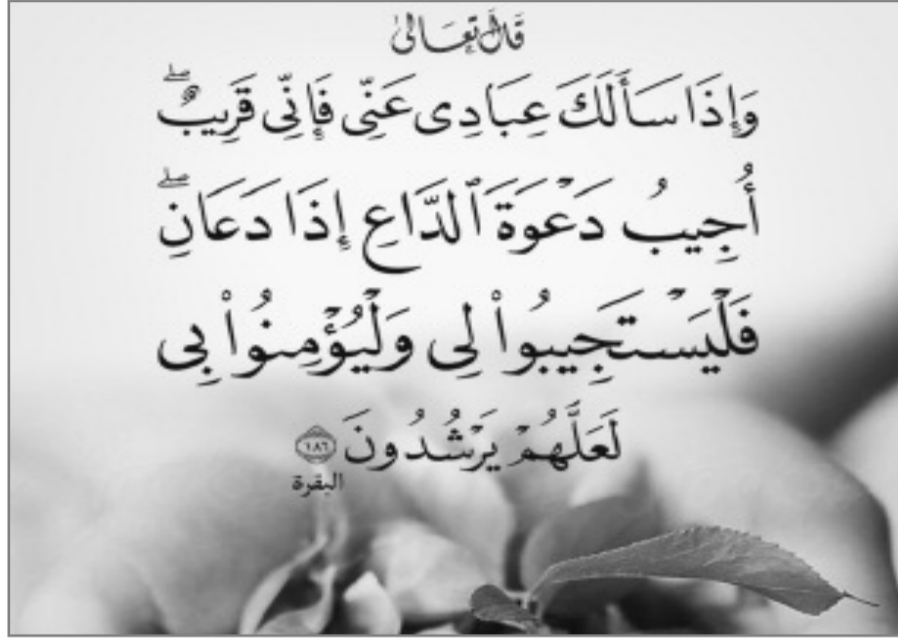 قال تعالى
وَإِذَا سَأَلَكَ عِبَادِى عَنِّى فَإِنِّى قَرِيبٌ ۖ
أُجِيبُ دَعْوَةَ ٱلدَّاعِ إِذَا دَعَانِ ۖ
فَلْيَسْتَجِيبُوا۟ لِى وَلْيُؤْمِنُوا۟ بِى
لَعَلَّهُمْ يَرْشُدُونَ ١٨٦
البقرة